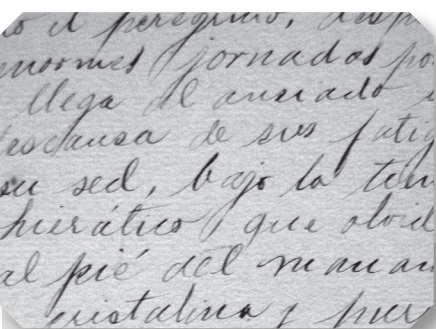 o el peregrino, desp
enormes jornadas po
llega al ansiado
descansa de sus fatig
su sed, bajo la
hierático, que olvid
al pié del manan
cristalina y pur